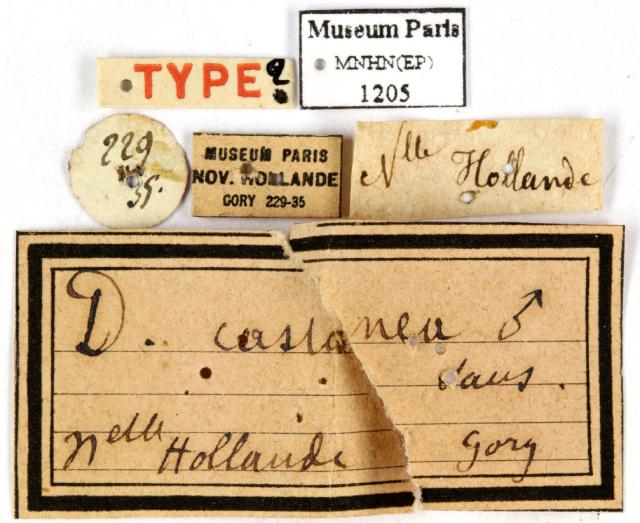 TYPE ?
Museum Paris
MNHN(EP)
1205
229
35.
MUSEUM PARIS
NOV. HOLLANDE
GORY 229-35
Nlle Hollande
D. castanea ♂
Nelle Hollande Gory